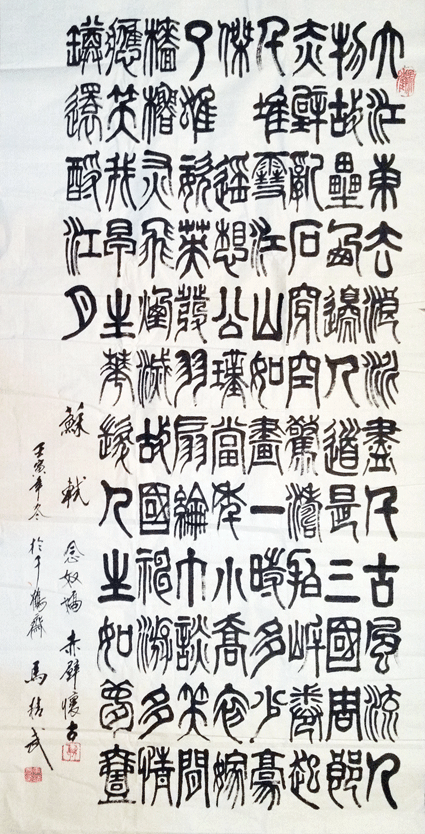 大江東去浪淘盡千古風流人
物故壘西邊人道是三國周郎
赤壁亂石穿空驚濤拍岸卷起
千堆雪江山如畫一時多少豪
傑遙想公瑾當年小喬初嫁
了雄姿英發羽扇綸巾談笑間
檣櫓灰飛煙滅故國神游多情
應笑我早生華髮人生如夢壹
鐏還酹江月 蘇軾 念奴嬌 赤壁懷古
壬寅年冬 於千鶴齋 馬武